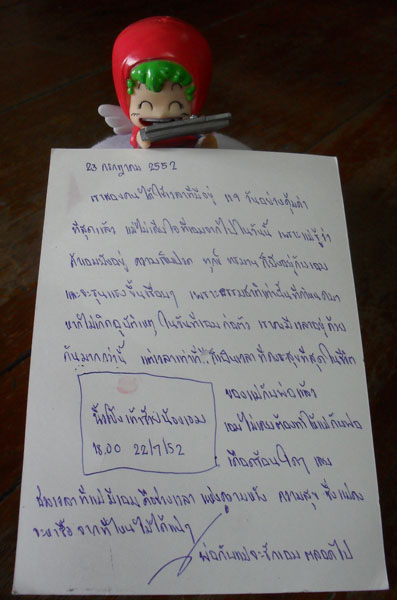 23 กรกฎาคม 2552
เราสองคนได้ใช้เวลาที่มีอยู่ ๒๑ วันอย่างคุ้มค่า
ที่สุดแล้ว แม่ไม่เสียใจที่เอมจากไปในวันนี้ เพราะแม่รู้ว่า
ถ้าเอมยังอยู่ ความเจ็บปวด ทุกข์ ทรมาน ก็ยังอยู่กับเอม
และจะรุนแรงขึ้นเรื่อยๆ เพราะธรรมชาติเท่านั้นที่กำหนดมา
หากไม่เกิดอุบัติเหตุ ในวันที่เอม เราจะมีเวลาอยู่ด้วย
กันมากกว่านี้ แต่เวลาเท่านี้ ก็เป็นเวลา ที่มีความสุขที่สุดในชีวิต
ของแม่กับพ่อแล้ว
เอมไม่เคยต้องทำให้แม่กับพ่อ
เดือดร้อนใดๆ เลย
น้องเอม
18.00 22/7/52
ช่วงเวลาที่แม่มีเอม คือช่วงเวลา แห่งความหวัง ความสุข ซึ่งแม่คง
จะหาซื้อ จากที่ไหนไม่ได้
พ่อกับแม่จะรักเอม ตลอดไป